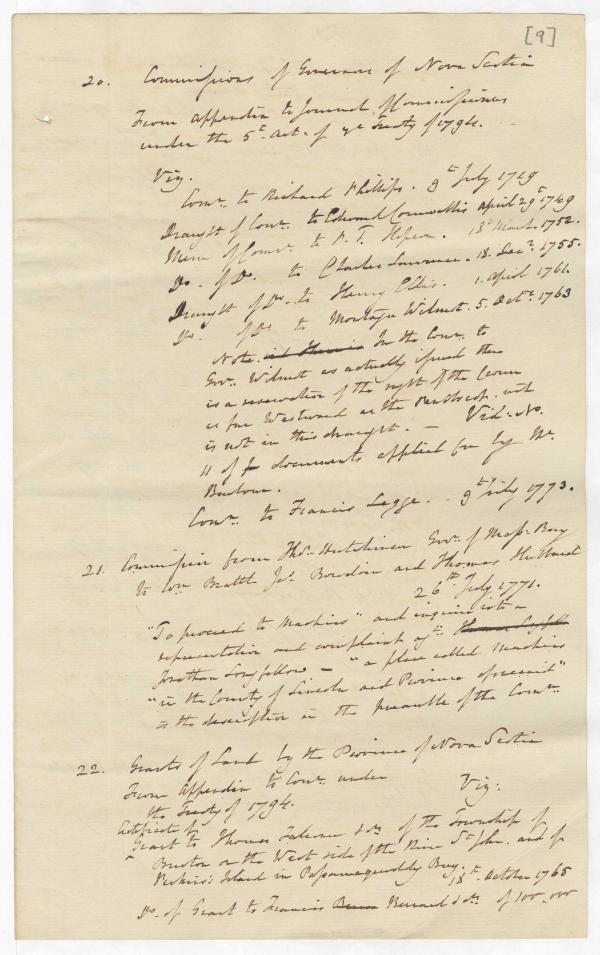 [9]
20. Commissions of Governors of Nova Scotia
From Appendix to Journal of Commissioners
under the 5th Art. of ye Treaty of 1794.
Viz.
Comn. to Richard Phillips. 9th July 1749
Draught of Comn. to Edward Cornwallis April 29th 1749
Mem of Comn. to P. T. Hopson. 18th March. 1752.
Do. of Do. to Charles Lawrence. 18. Decr. 1755.
Draught of Do. to Henry Ellis. 1. April 1761.
Do. of Do. to Montagu Wilmot. 5. Octr. 1763
Note. In the Comn. to
Govr. Wilmot as actually issued there
is a reservation of the right of the Crown
as far Westward as the Penobscot. wch
is not in this draught. — Vid. No.
11 of documents applied for by Mr.
Comn. to Francis Legge. 9th July 1773.
21. Commission from Thos. Hutchinson Govr. of Massa. Bay
to Wm Brattle Jas. Bowdoin and Thomas Hubbard
26th July 1771.
"To proceed to Machias" and inquire into a
representation and complaint agt.
Jonathan Longfellow — "a place called Machias
"in the County of Lincoln and Province aforesaid"
is the description in the preamble of the Comn.
22. Grants of Land by the Province of Nova Scotia
From Appendix to Comn. under Viz:
the Treaty of 1794.
Certificate of
Grant to Thomas Falconer & ors of the Township of
Burton on the West side of the River St John. and of
Perkins Island in Passamaquoddy Bay.
18th. October 1765
Do. of Grant to Francis Bernard & ors of 100,000